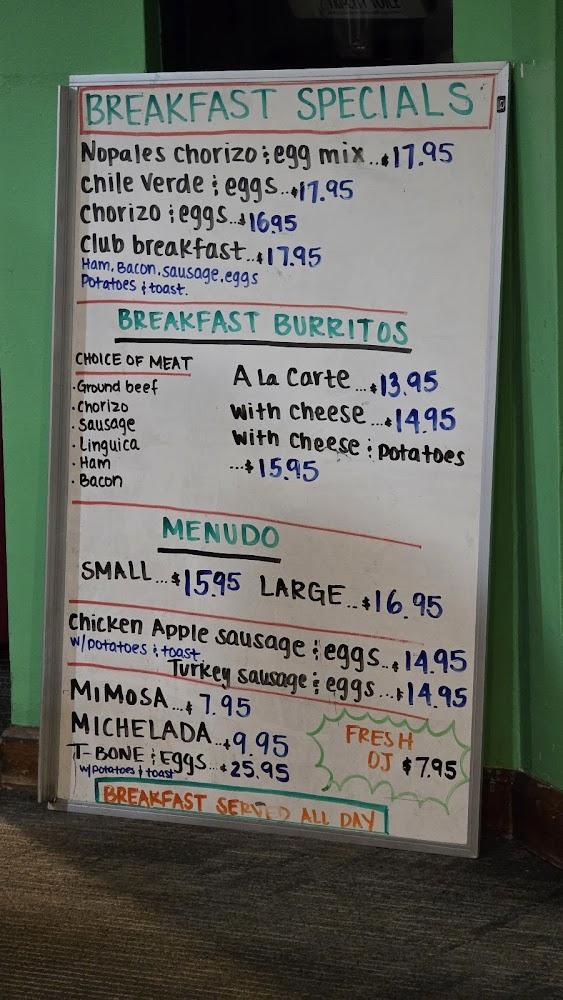 BREAKFAST SPECIALS
Nopales chorizo & egg mix..$17.95
chile verde & eggs..$17.95
chorizo & eggs..$16.95
club breakfast..$17.95
Ham, Bacon, sausage, eggs
Potatoes & toast.
BREAKFAST BURRITOS
CHOICE OF MEAT
·Ground beef
·Chorizo
·Sausage
·Linguica
·Ham
·Bacon
A La Carte...$13.95
with cheese...$14.95
with cheese & potatoes
...$15.95
MENUDO
SMALL...$15.95 LARGE..$16.95
Chicken Apple sausage & eggs..$14.95
w/potatoes & toast
Turkey sausage & eggs...$14.95
MiMOSA...$7.95
MICHELADA..$9.95
T-BONE & Eggs...$25.95
w/potatoes & toast
FRESH
OJ $7.95
BREAKFAST SERVED ALL DAY